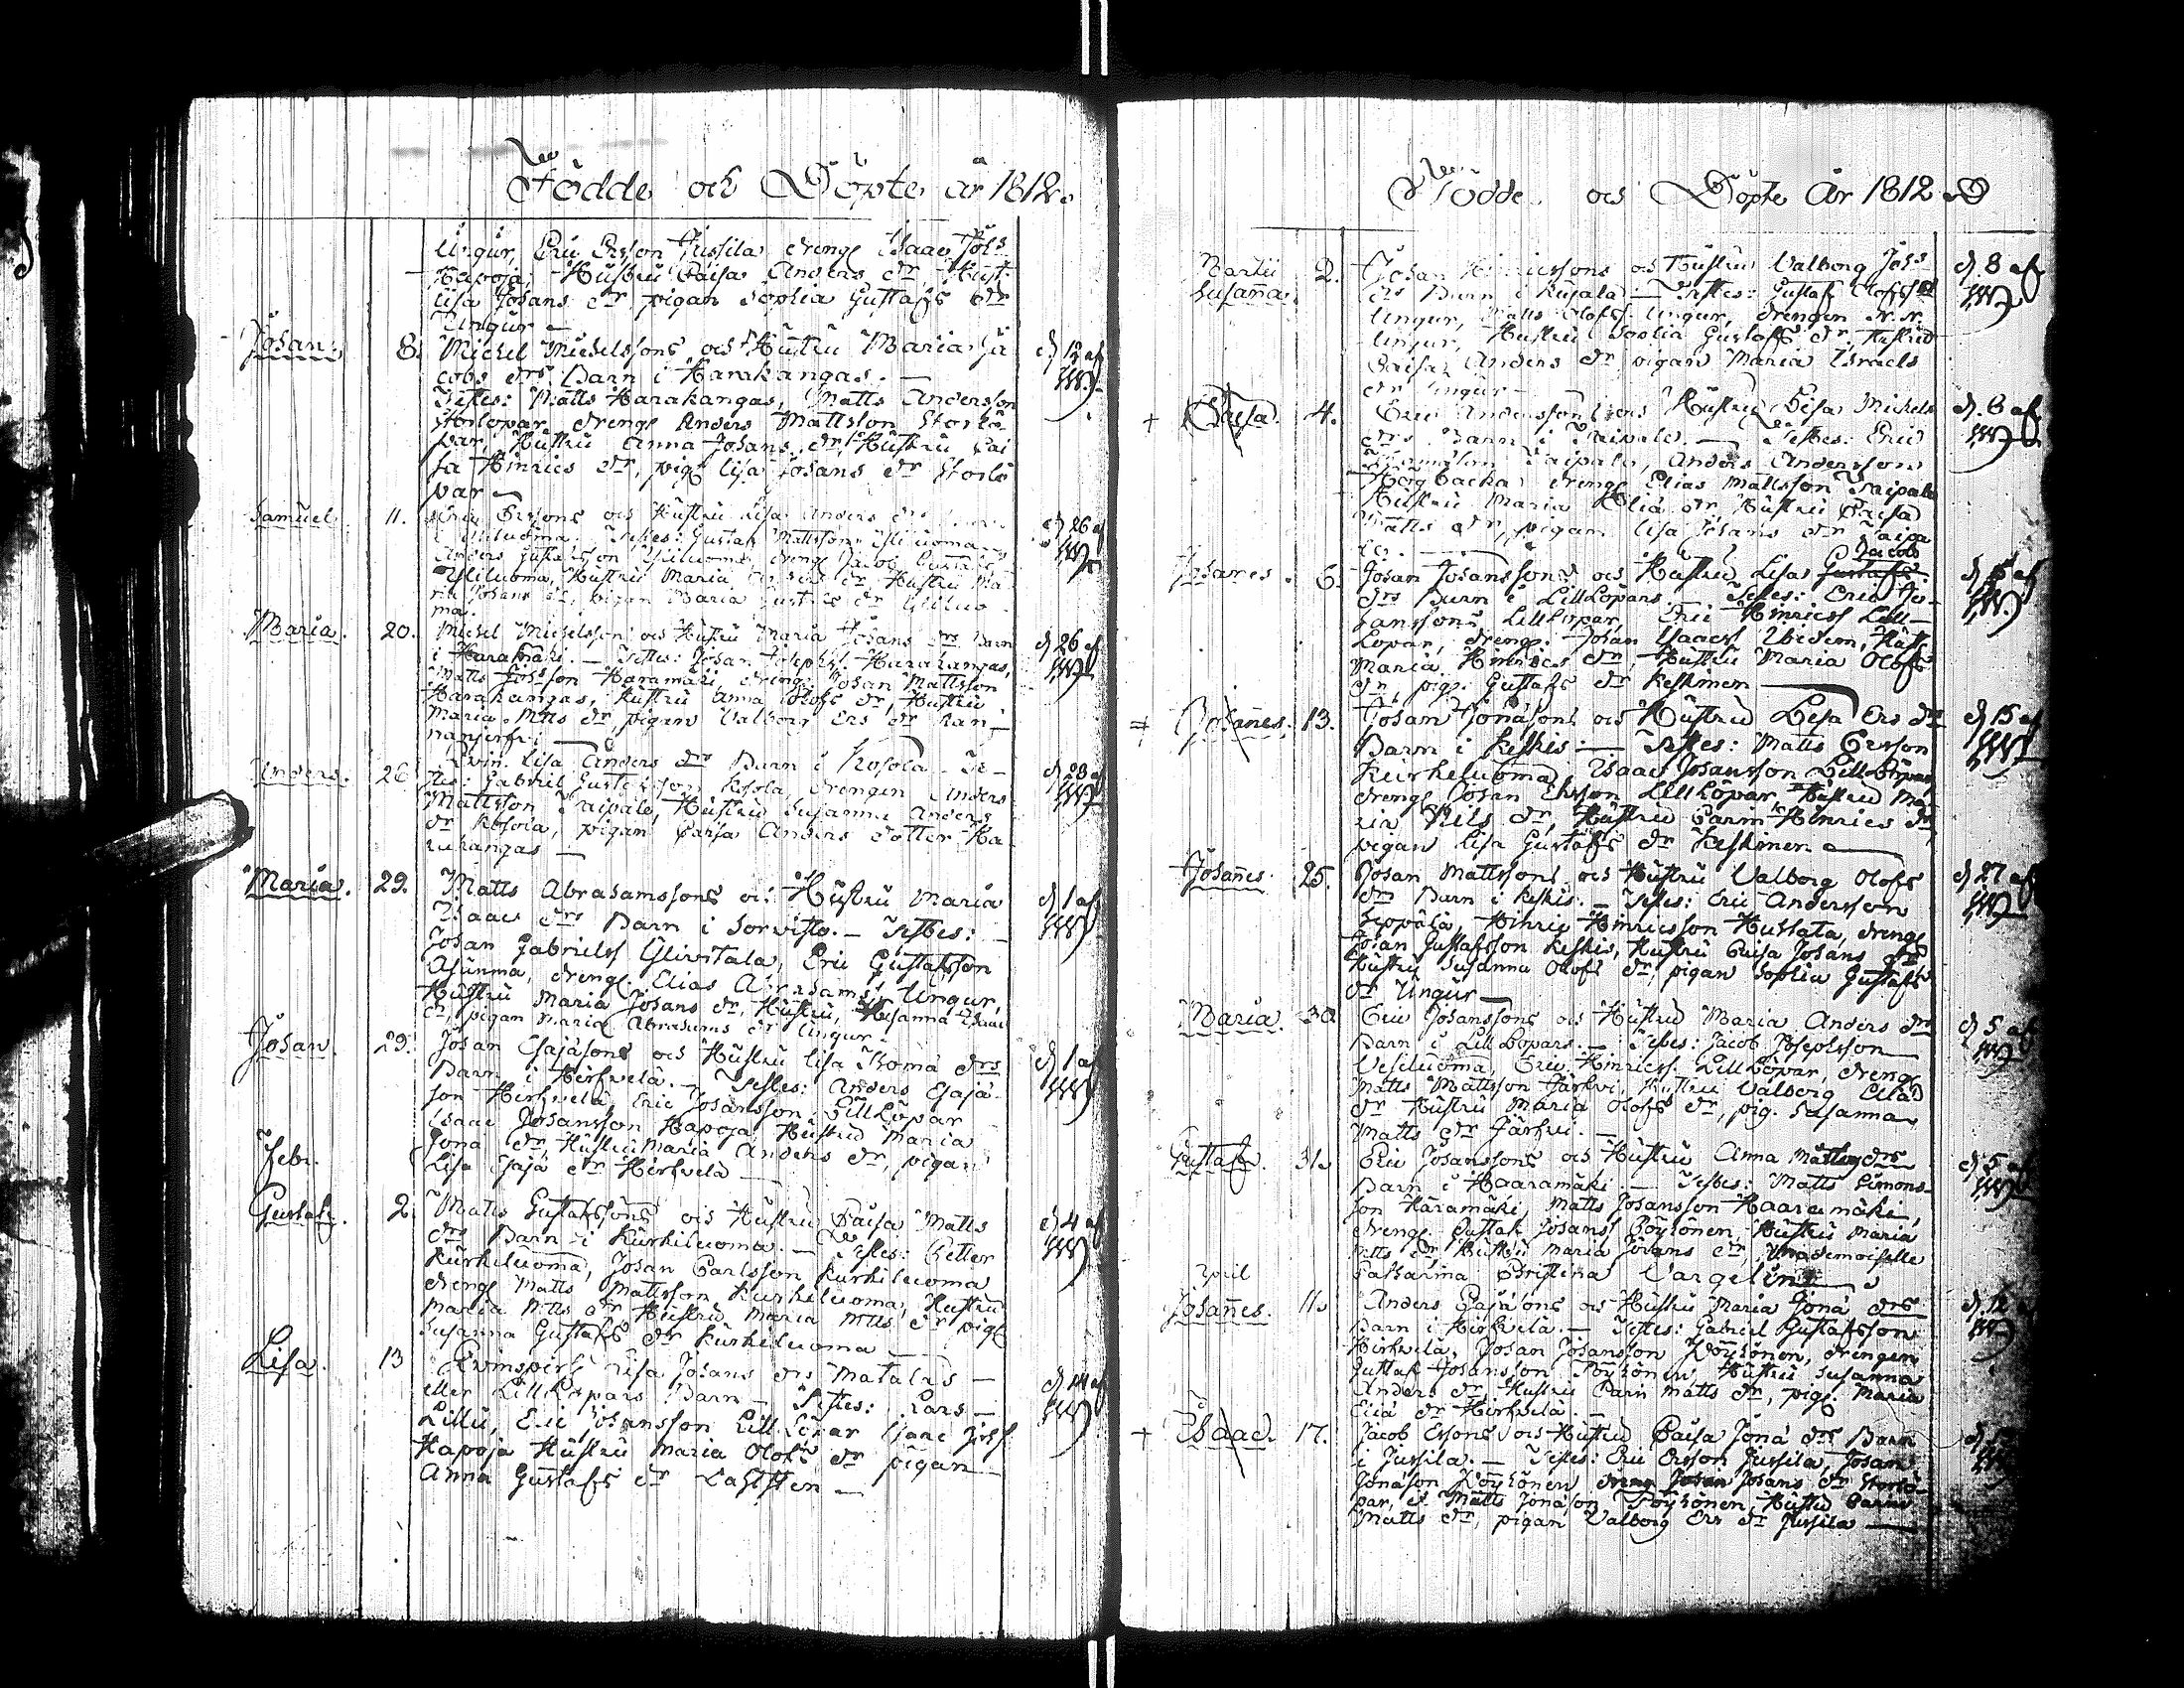 Födde och Döpte år 1812.
Ungur, Eric Ersson Jussila dreng Isaac Johs
Hapoja, Hustru Caisa Anders dr Hust.
Lisa Johans dr, pigan Sophia Gustafs dr
Ungur —
Johan. 8. Michel Michelssons och Hustru Maria Ja d 12 af
cobs drs Barn i Harakangas. —
Testes: Matts Harakangas, Matts Andersson
Storlopar, drengs Anders Mattsson Storlo
par, Hustru Anna Johans dr, Hustru Cai
sa Hinrics dr, pig. Lisa Johans dr Storlo
par —
Samuel. 11. Ersons och Hustru Lisa Anders d 26 af
Testes: Gustaf Mattsson Yliluoma
Anders Gustafsson Yliluoma, dreng Jacob
Yliluoma, Hustru Maria dr Hustru Ma
ria Johans dr, pigan Maria dr Yliluo
ma.
Maria. 20. Michel Michelsson och Hustru Maria Johans drs Barn d 26 af
i Haramäki. — Testes: Johan Josephs. Harakangas,
Matts Johsson Haramäki, dreng. Johan Mattsson
Harakangas, Hustru Anna Olofs dr, Hustru
Maria Mtts dr, pigan Valborg Ers dr Kan
Anders. 26 Qvin. Lisa Anders drs Barn i Kosola. Te- d 28 af
stes: Gabriel Gustafsson Kosola, drengen Anders
Mattsson Taipale, Hustru Susanna Anders
dr Kosola, pigan Caisa Anders dotter Ha-
rakangas —
Maria. 29. Matts Abrahamssons och Hustru Maria d 1 af
Isaacs drs Barn i Sorvisto. — Testes: —
Johan Gabrielss Ylivitala, Eric Gustafsson
Asunma, dreng. Elias Abrahamss Ungur,
Hustru Maria Johans dr, Hustru, Susanna Isaac
dr, pigan Maria Abrahams dr Ungur.
Johan. 29. Johan Esajäsons och Hustru Lisa Thomä drs d 1 af
Barn i Hirfvelä. — Testes: Anders Esajä-
son Hirfvelä, Eric Johansson LillLöpar
Isaac Johansson Hapoja, Hustru Maria
Jona dr, Hustru Maria Anders dr, pigan
Lisa Esajä dr Hirfvelä —
Febr.
Gustaf. 2. Matts Gustafssons och Hustru Caisa Matts d 4 af
drs Barn i Kurkiluoma. — Testes: Petter
Kurkiluoma, Johan Carlsson Kurkiluoma
drengs Matts Mattsson Kurkiluoma, Hustru
Maria Mtts dr Hustru Maria Mtts dr pigs
Susanna Gustafs dr Kurkiluoma —
Lisa. 13 Qvinspers. Lisa Johans drs Matalas — d 14 af
eller LillLöpars Barn — Testes: Lars —
Lillu, Eric Johansson LillLöpar Isaac Johss
Hapoja Hustru Maria Olofs dr pigan
Anna Gustafs dr Lahtsten —
Födde och Döpte År 1812
Martii
Susanna. 2. Johan Hinricssons och Hustru Valborg Johs d 8 af
drs Barn i Kujala — Testes: Gustaf Olofss
Ungur, Matts Olofs. Ungur, drengen N. N.
Ungur, Hustru Sophia Gustafs dr, Hustru
Caisa Anders dr, pigan Maria Israels
dr Ungur —
+ Caisa. 4. Eric Anderssons och Hustru Lisa Michels d. 8 af
drs Barn i Taipale. — Testes: Eric
Taipale, Anders Andersson
Högbacka dreng Elias Mattsson Taipale
Hustru Maria Eliä dr Hustru Caisa
Matts dr, pigan Lisa Johans dr Taipa
le. —
Jacobs
Johanes. 6. Johan Johanssons och Hustru Lisa Gustafs
drs Barn i LillLöpars — Testes: Eric Jo-
hanssons LillLöpar, Eric Hinricss Lill-
Löpar, dreng. Johan Isaacss Hust.
Maria Hinrics dr, Hustru Maria Olofs
dr pigs. Gustafs dr Keskinen —
+ Johañes. 13. Johan Jonäsons och Hustru Lisa Ers drs d 15 af
Barn i Keskis. — Testes: Matts Ersson
Kurkeluoma, Isaac Johansson LillLöpar,
drengs Johan Ersson LillLöpar Hustru Ma-
ria Nills dr, Hustru Carin Hinrics dr
pigan Lisa Gustafs dr Keskinen —
Johañes. 25. Johan Mattssons och Hustru Valborg Olofs d 27 af
drs Barn i Keskis. — Testes: Eric Andersson
Seppälä, Hinric Hinricsson Huhtala, drengs
Johan Gustafsson Keskis, Hustru Caisa Johans dr
Hustru Susanna Olofs dr, pigan Sophia Gustafs
dr Ungur —
Maria. 30. Eric Johanssons och Hustru Maria Anders drs d 5 af
Barn i LillLöpars. — Testes: Jacob Josephsson
Vesiluoma, Eric Hinricss. LillLöpar, drengs
Matts Mattsson Järfvi, Hustru Valborg Eliä
dr Hustru Maria Olofs dr, pig. Susanna
Matts dr Järfvi. —
Gustaf. 31. Eric Johanssons och Hustru Anna Matts drs d 5 af
Barn i Haaramäki — Testes: Matts Simons-
son Haramäki, Matts Johansson Haaramäki,
dreng. Gustaf Johanss Pöyhönen, Hustru Maria
Mtts dr Hustru Maria Johans dr, Mademoiselle
Catharina Christina Vargelin —
April
Johañes. 11. Anders Esajäsons och Hustru Maria Jonä drs d. 12 af
Barn i Hirfvelä. — Testes: Gabriel Gustafsson
Hirfvelä, Johan Johansson Pöyhönen, drengen
Gustaf Johansson Pöyhönen, Hustru Susanna
Anders dr, Hustru Carin Matts dr, pigs. Maria
Eliä dr Hirfvelä. —
+ Isaac. 17. Jacob Ersons och Hustru Caisa Jonä drs Barn
i Jussila. — Testes: Eric Ersson Jussila, Johan
Jonäson Pöyhönen dreng Johan Johans dr Storlo-
par, d. Matts Jonäson Pöyhönen, Hustru Carin
Matts dr, pigan Valborg Ers dr Jussila —